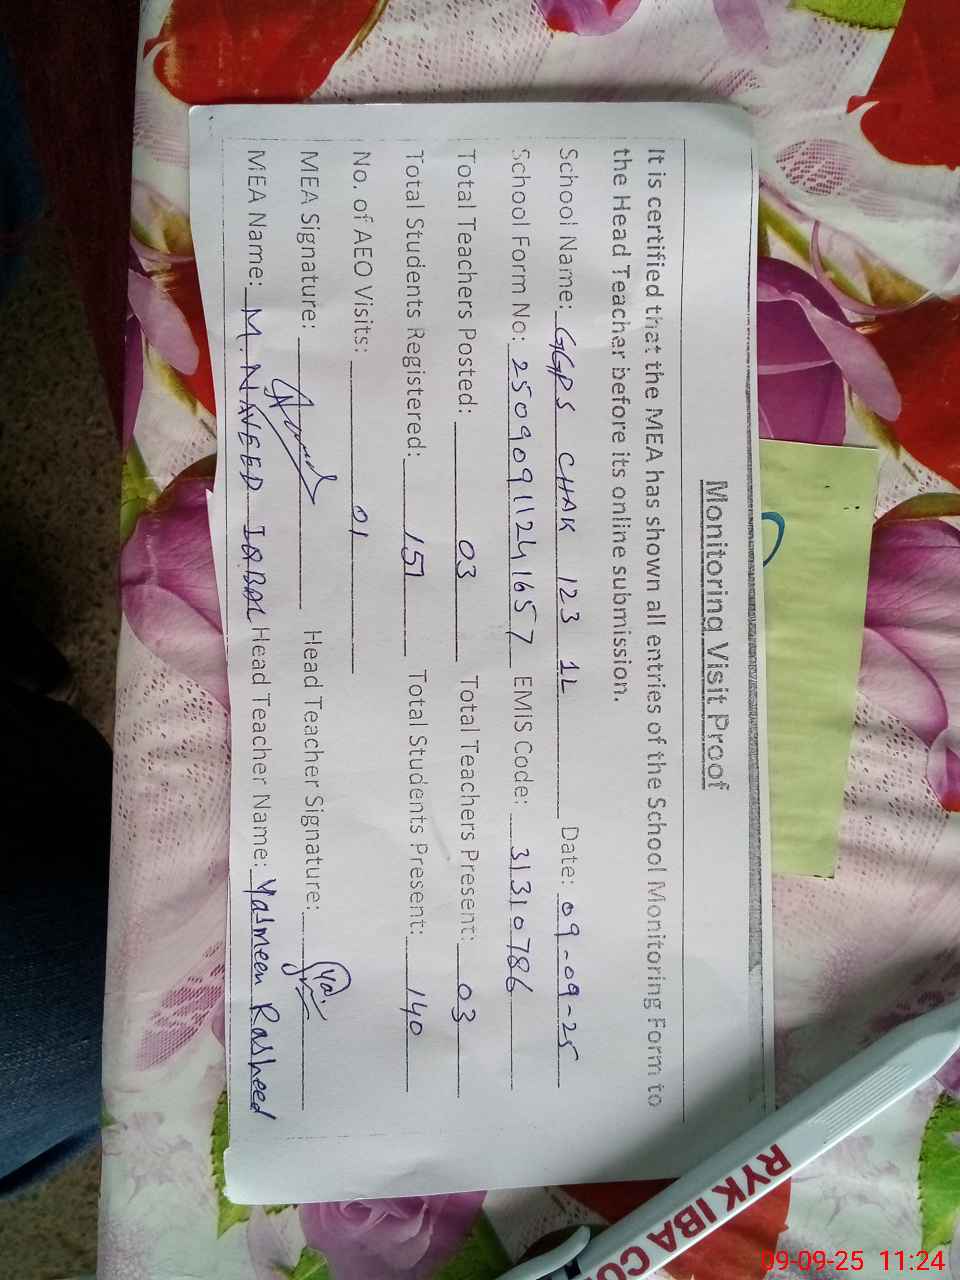 Monitoring Visit Proof
It is certified that the MEA has shown all entries of the School Monitoring Form to
the Head Teacher before its online submission.
School Name: GGPS CHAK 123 1L Date: 09-09-25
School Form No: 25090911224165 7 EMIS Code: 31310786
Total Teachers Posted: 03 Total Teachers Present: 03
Total Students Registered: 151 Total Students Present: 140
No. of AEO Visits: 01
MEA Signature: Head Teacher Signature:
MEA Name: M NAVEED IQBAL Head Teacher Name: Yasmeen Rasheed
RYK IBA CO
09-09-25 11:24